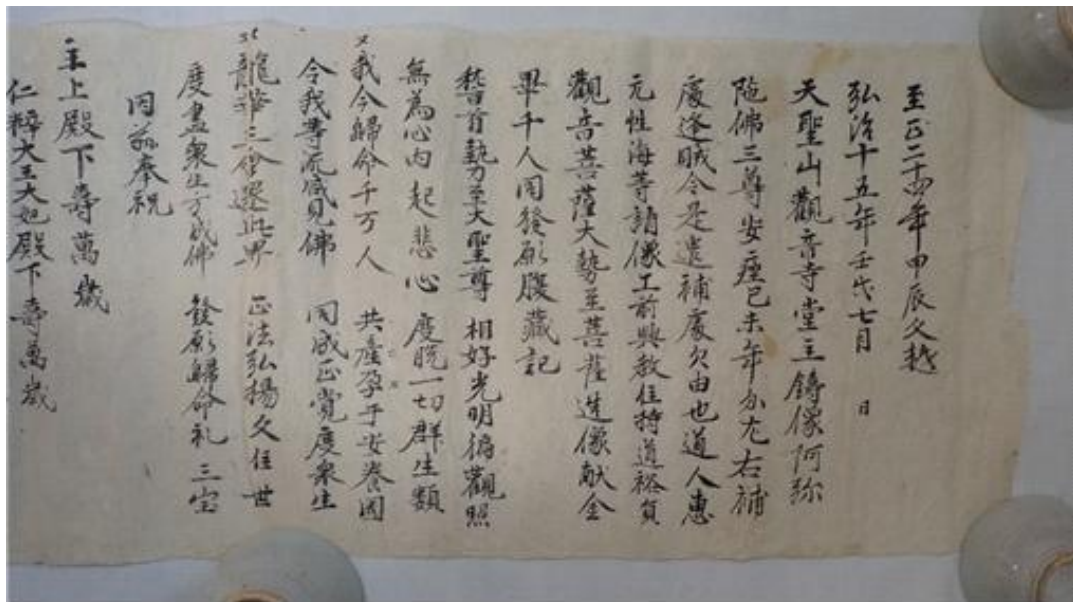 至正二十四年甲辰欠越
弘治十五年壬戌七月 日
天聖山觀音寺堂主鑄像阿弥
陁佛三尊安疰己未年分左右補
處逢賊令是遣補處欠由也道人惠
元性海等請像工前興敎住持道裕貿
觀音菩薩大勢至菩薩造像献金
畢千人同發願腹藏記
䭬首勢至大聖尊 相好光明徧觀照
無為心內起悲心 度脫一切群生類
我今歸命千万人 共產孕于安養国
令我等流咸見佛 同成正覺度衆生
龍華三會還此界 正法弘揚久住世
度盡衆生方成佛 發願歸命礼三宝
同前奉祝
主上殿下壽萬歲
仁粹大王大妃殿下壽萬歲